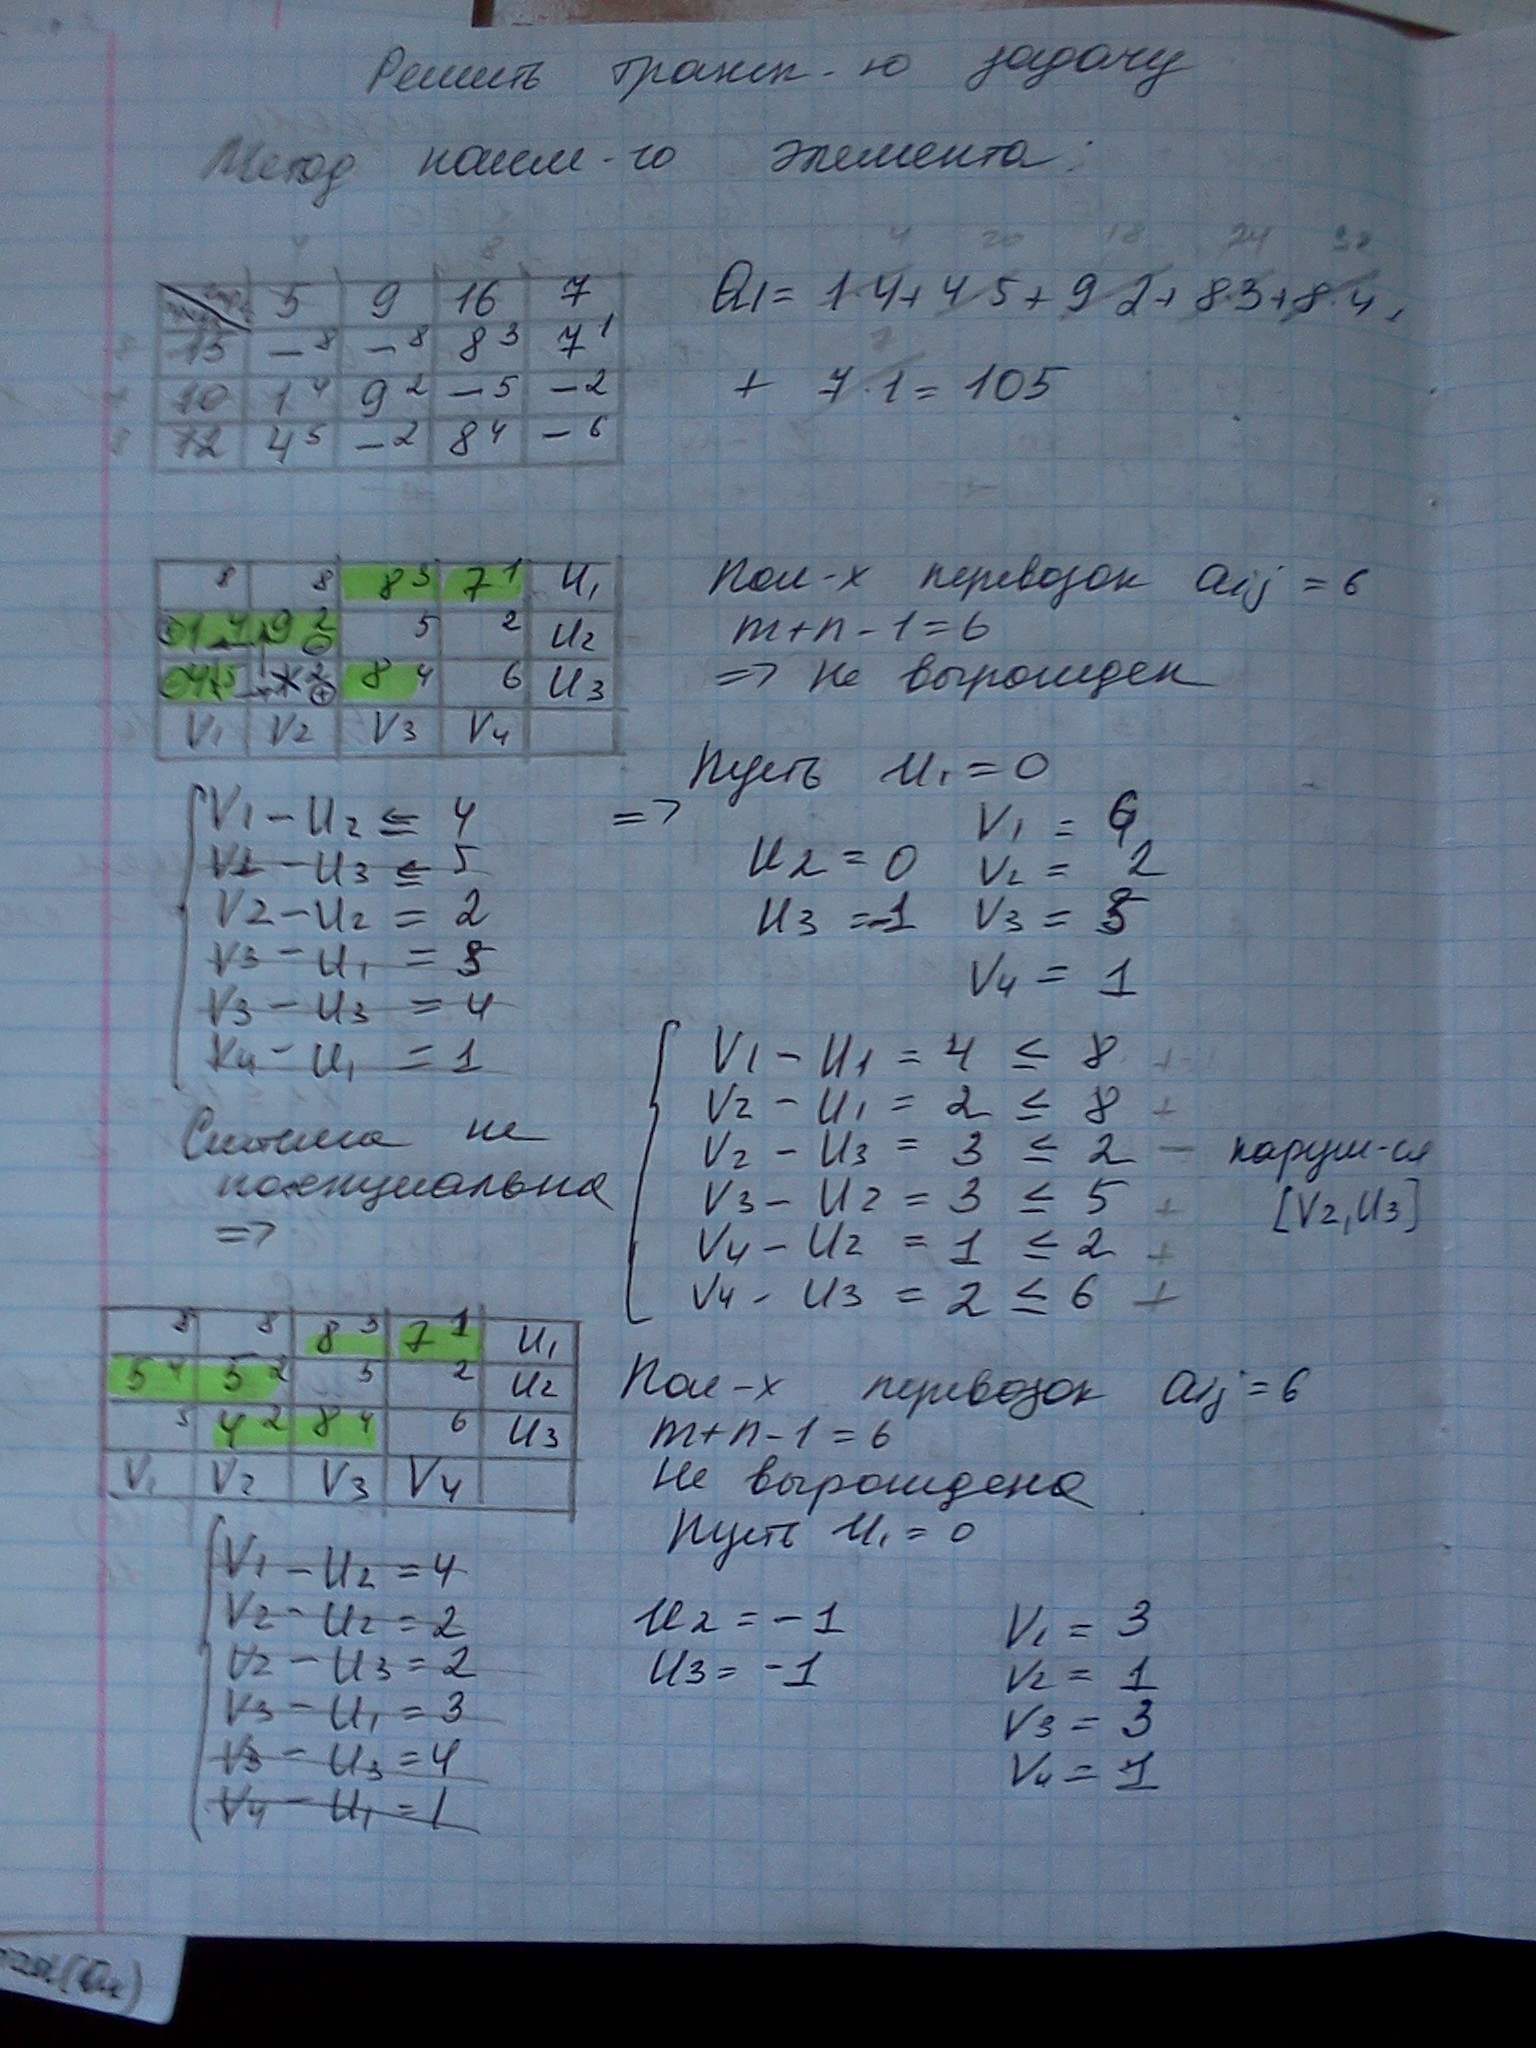 Решить трансп-ю задачу
Метод наим-го элемента:
5 9 16 7
15 –8 –8 8 3 7 1
10 1 4 9 2 –5 –2
12 4 5 –2 8 4 –6
4 20 18 24 32
Q1 = 1·4 + 4·5 + 9·2 + 8·3 + 8·4 +
+ 7·1 = 105
8 8 8 3 7 1 U1
1 4 9 2 5 2 U2
4 5 2 8 4 6 U3
V1 V2 V3 V4
Пол-х перевозок aij = 6
m+n-1=6
=> Не вырожден
Пусть U1 = 0
V1 - U2 ≤ 4 =>
V1 - U3 ≤ 5
V2 - U2 = 2
V3 - U1 = 3
V3 - U3 = 4
V4 - U1 = 1
V1 = 4
U2 = 0 V2 = 2
U3 = -1 V3 = 3
V4 = 1
Система не
потенциальна
=>
V1 - U1 = 4 ≤ 8 +
V2 - U1 = 2 ≤ 8 +
V2 - U3 = 3 ≤ 2 – наруш-ся
[V2, U3]
V3 - U2 = 3 ≤ 5 +
V4 - U2 = 1 ≤ 2 +
V4 - U3 = 2 ≤ 6 +
8 8 8 3 7 1 U1
5 4 5 2 5 2 U2
5 4 2 8 4 6 U3
V1 V2 V3 V4
Пол-х перевозок aij = 6
m+n-1 = 6
Не вырождена
Пусть U1 = 0
V1 - U2 = 4
V2 - U2 = 2
V2 - U3 = 2
V3 - U1 = 3
V3 - U3 = 4
V4 - U1 = 1
U2 = -1 V1 = 3
U3 = -1 V2 = 1
V3 = 3
V4 = 1